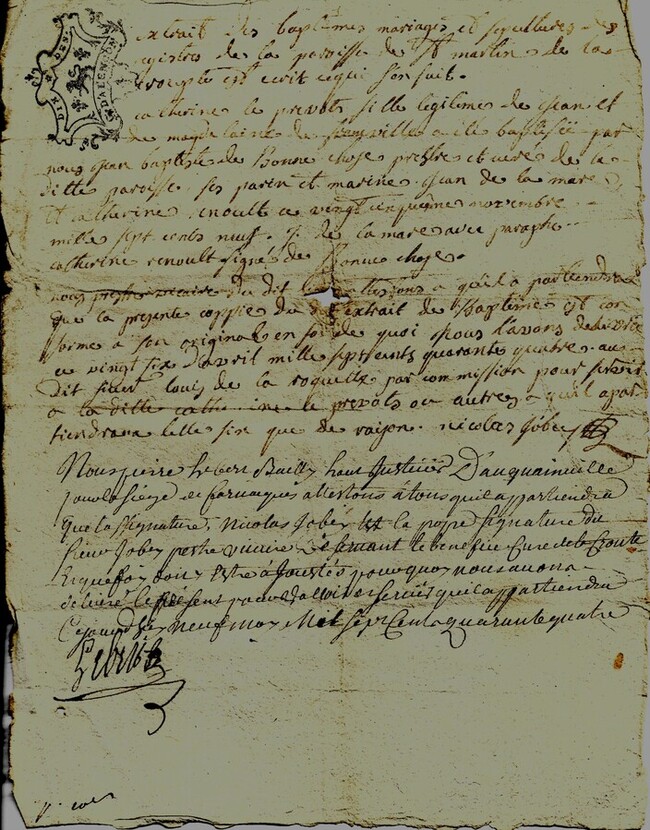 DIX DEN
DALENCON
extrait des baptêmes mariages et sepultures des
registres de la paroisse de St martin de la
est ecrit cequi sensuit.
catherine le prevots fille legitime de jean et
de magdelaine de a été baptisée par
nous jean baptiste de bonne chose prestre et curé de la
ditte paroisse, ses parin et marine jean de la mare
et catherine enoult ce vingt cinquieme novembre
mille sept cents neuf. J. de la mare avec paraphe
catherine renoult signé de Bonne chose.
nous prestre vicaire du dit a qu'il apartiendra
que la presente coppie du extrait de Baptême est con
forme a son original en foi de quoi nous l'avons delivré
ce vingt six d'avril mille sept cents quarante quatre au
dit sieur louis de la roquette par commission pour servir
a la ditte catherine le prevots ou autres a qu'il apar
tiendra telle fin que de raison. nicolas Jobey
Nous pierre hebert Bailly haut Justicier D'auquainville
pour le siege de fervaques attestons a tous qu'il appartiendra
que la signature, Nicolas Jobey est la propre signature du
sieur Jobey prestre vicaire Desservant le benefice Cure de la Croute
et que foy doit estre ajoustée pourquoy nous avons
delivré le present pour valloir et servir qu'il appartiendra
Ce jourd'huy neuf may Mil sept Cents quarante quatre